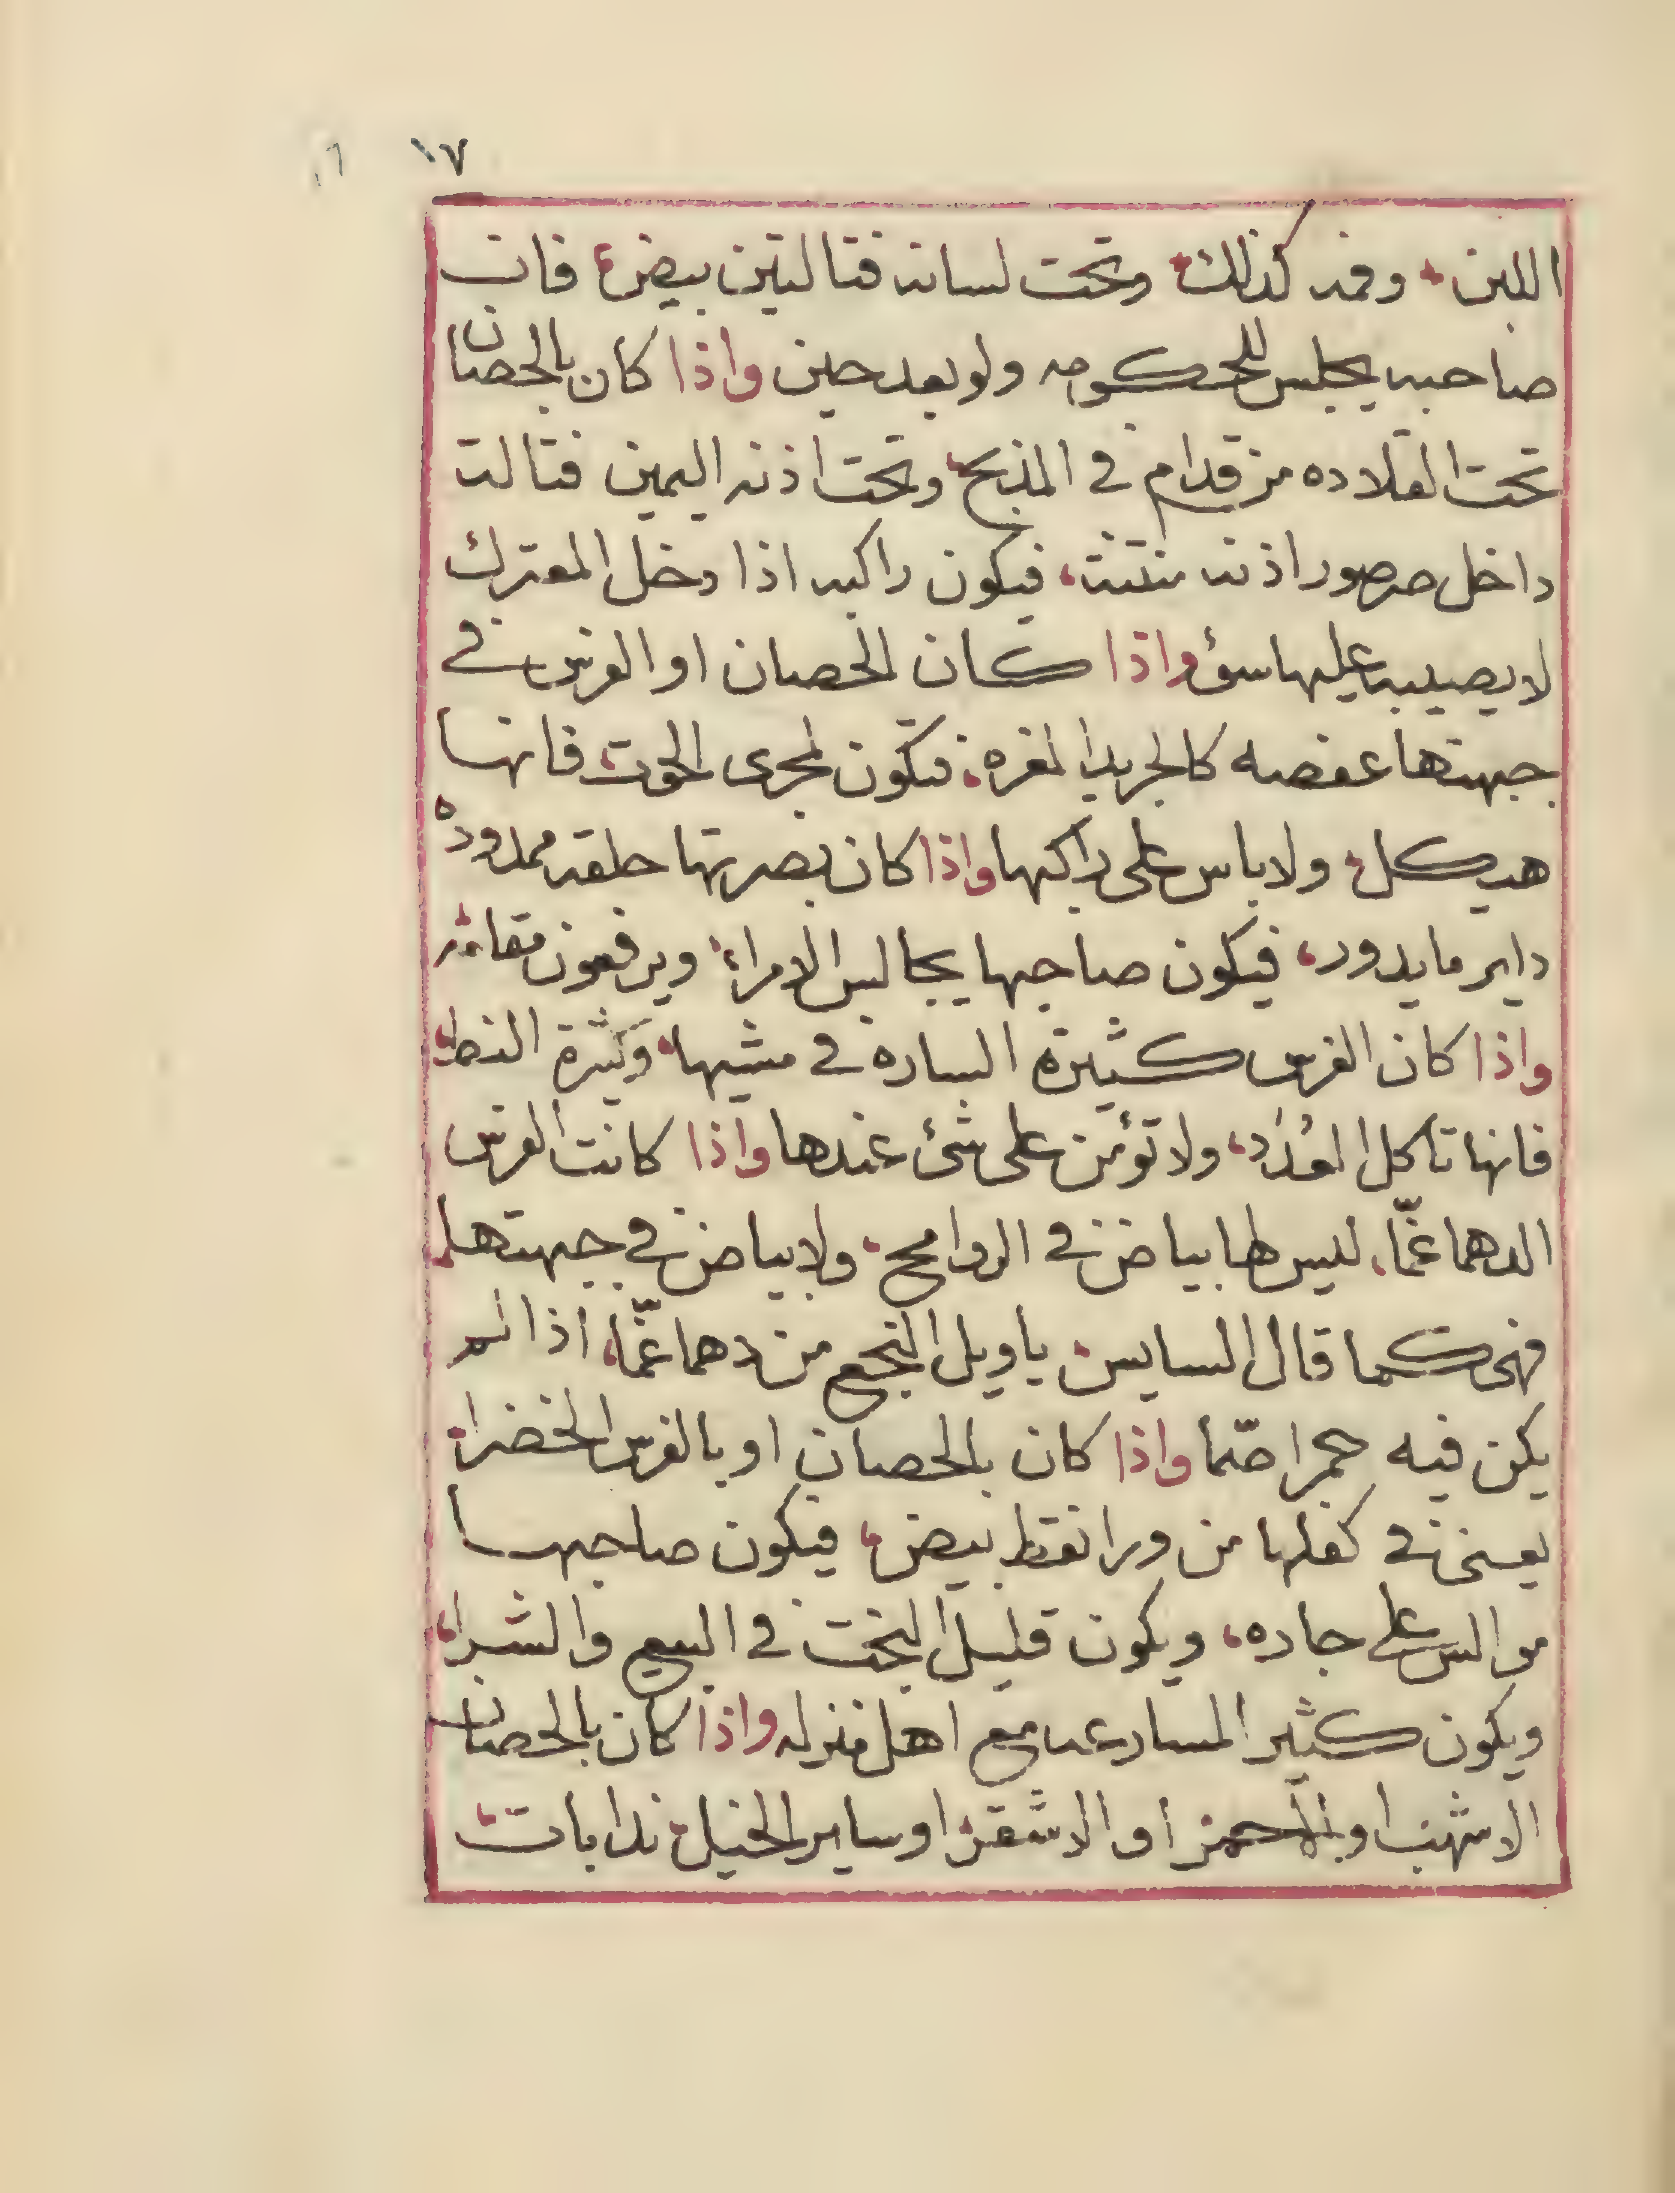 ١٧
اللبن، وفمه كذلك، وتحت لسانه فتالتين بيض، فان
صاحبه يجلس للحكومه ولو بعد حين واذا كان بالحصان
تحت القلاده من قدام في المذبح، وتحت اذنه اليمين فتالت
داخل صرصور اذنه، فيكون راكبه اذا دخل المعترك
لا يصيبه عليها سؤ واذا كان الحصان او الفرس في
جبهتها عفصه كالجريد المغره، فتكون لمجرى الحوت فانها
هيكل، ولا باس على راكبها واذا كان بصرتها حلقه ممدوده
داير مايدور، فيكون صاحبها يجالس الامراء، ويرفعون مقامه
واذا كان الفرس كثيرة الساره في مشيها، وكثرة النط،
فانها تاكل العُدَد، ولا تؤمن على شئ عندها واذا كانت الفرس
الدهما غمّا، ليس لها بياض في الروامح، ولا بياض في جبهتها،
فهى كما قال السايس، ياويل النجع من دهما غمّا، اذا لم
يكن فيه حمرا صمّا واذا كان بالحصان او بالفرس الخضرا،
يعنى في كفلها من ورا نقط بيض، فيكون صاحبها
موالس على جاره، ويكون قليل البخت في البيع والشرا،
ويكون كثير المسارعه مع اهل منزله واذا كان بالحصان
الاشهب او بالاحمر او الاشقر، او ساير الخيل، ندابات،